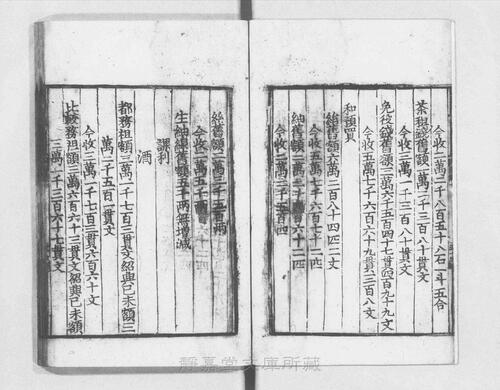 今收二萬二千八百五十八石一斗五合
茶租錢舊額二萬二千三百八十貫文
今收二萬一千三百八十貫文
免役錢舊額三萬六千五百四十七貫四百九十九文
今收五萬七千六百六十九貫三百八文
和預買
紬舊額六萬三百八十四匹二丈
今收五萬七千六百七十一匹
紬舊額二萬三千六百六十二匹
今收二萬三千三百四
絲舊額二萬三千五百兩
今收二萬五千
生紬線舊額五千兩無增減
課利
酒
都務祖額三萬一千七百三貫文紹興己未額三
萬二千五百一貫文
今收三萬一千七百三貫六百六十文
比較務祖額三萬六百六十三貫文紹興己未額
三萬一千三百六十七貫文
靜嘉堂文庫所藏